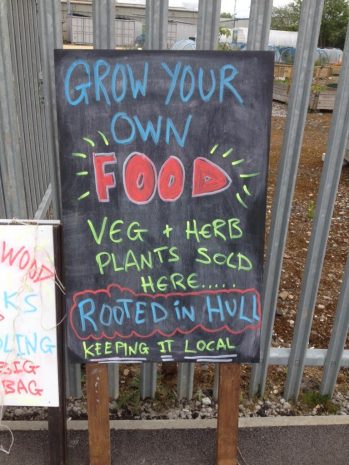 GROW YOUR
OWN
FOOD
VEG + HERB
PLANTS SOLD
HERE.....
ROOTED in HULL
KEEPING IT LOCAL
WOOD
KS
LING
BIG
BAG